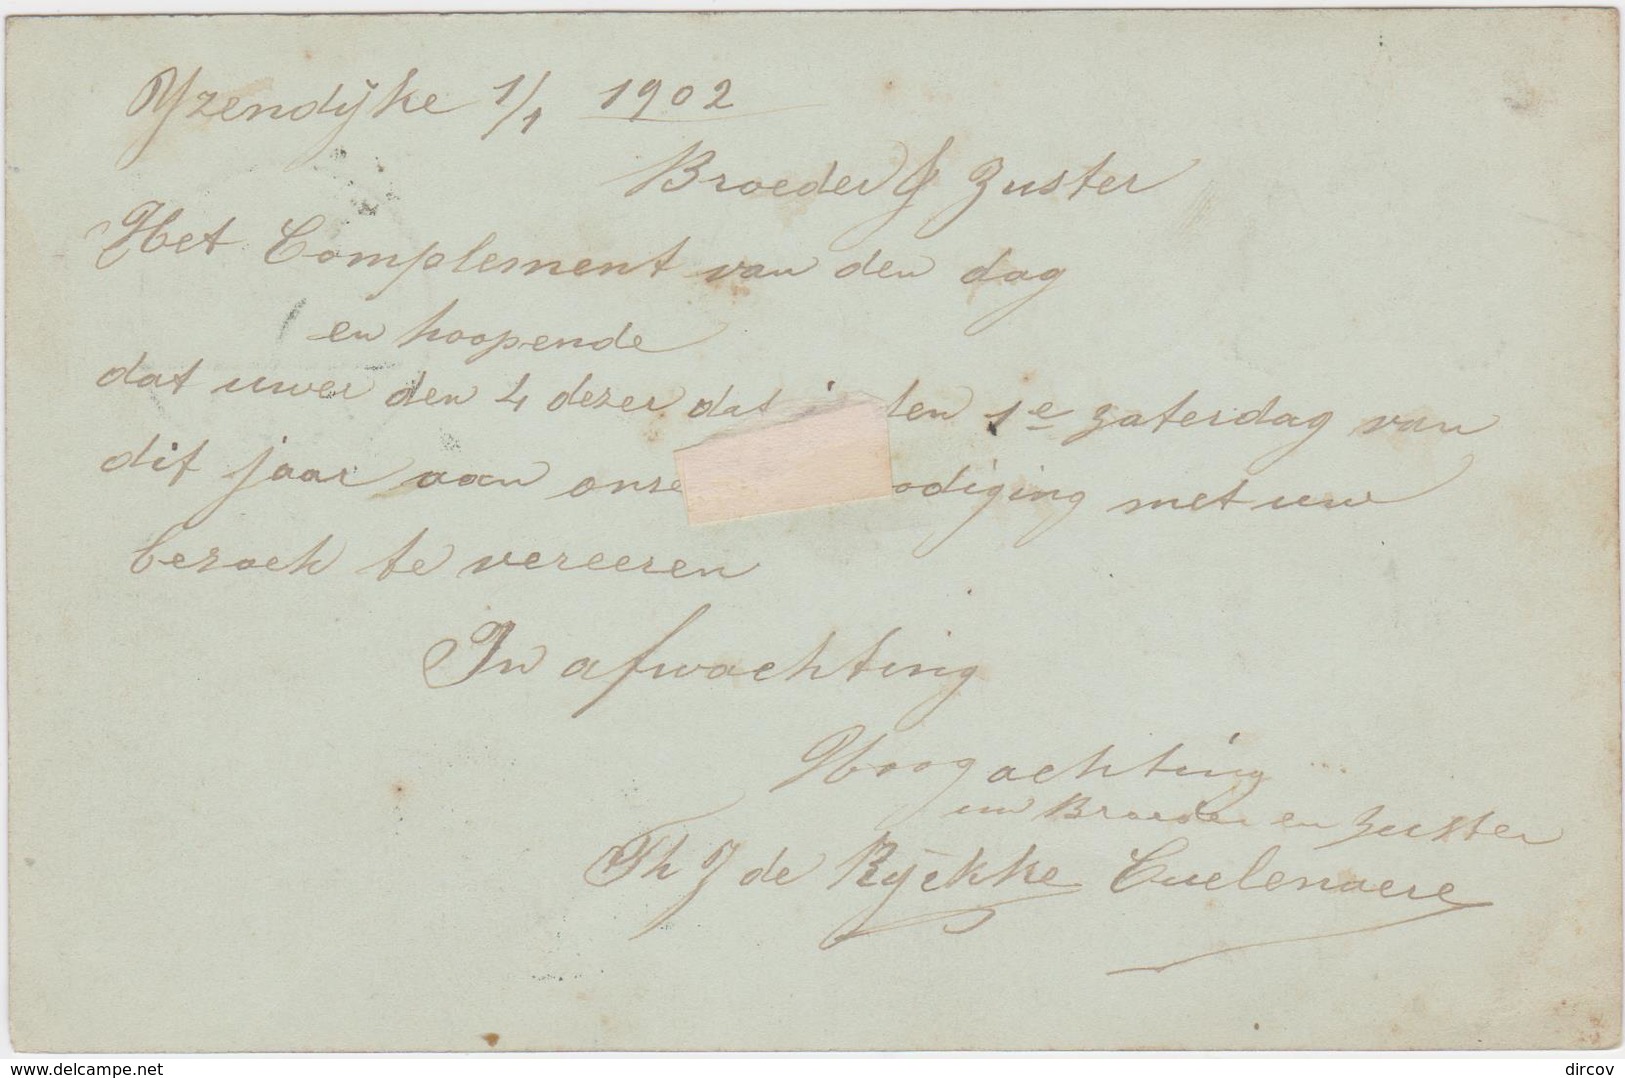 Yzendijke 1/1 1902
Broeder & Zuster
Het Complement van den dag
en hoopende
dat uwer den 4 dezer dat den 1e zaterdag van
dit jaar aan onze odiging met uw
bezoek te vereeren
In afwachting
Hoogachting
uw Broeder en Zuster
Th J de Rijckke Cuelenaere
delcampe.net
dircov